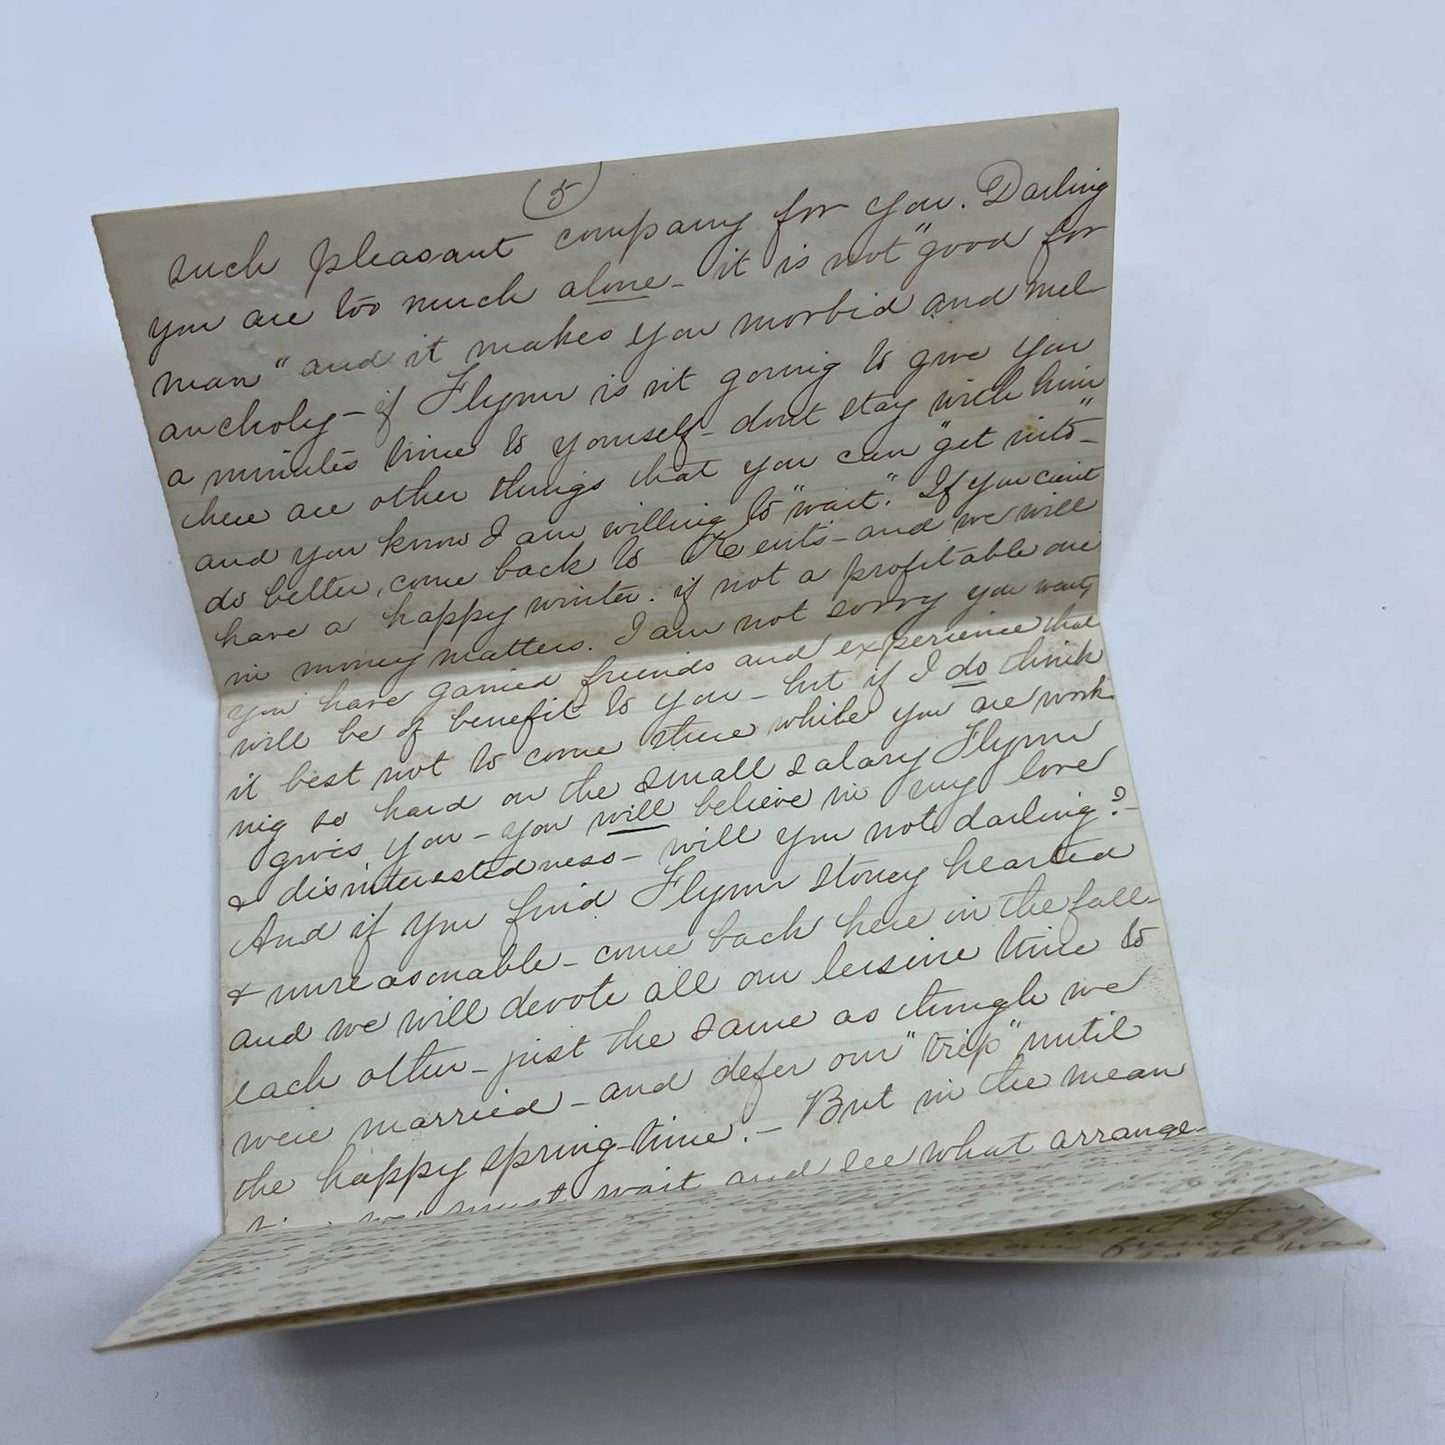 (5)
such pleasant company for you. Darling
you are too much alone - it is not "good for
man" and it makes you morbid and mel
ancholy - if Flynn is not going to give you
a minutes time to yourself - dont stay with him
there are other things that you can "get into" -
and you know I am willing to "wait". If you cant
do better, come back to Kents - and we will
have a happy winter. if not a profitable one
in money matters. I am not sorry you went
you have gained friends and experience that
will be of benefit to you - but if I do think
it best not to come there while you are work
ing so hard on the small salary Flynn
gives you - you will believe in my love
& disinterestedness - will you not darling? -
And if you find Flynn stoney hearted
& unreasonable - come back here in the fall -
and we will devote all our leisure time to
each other - just the same as though we
were married - and defer our "trip" until
the happy spring-time. - But in the mean
time we must wait and see what arrange-
it was